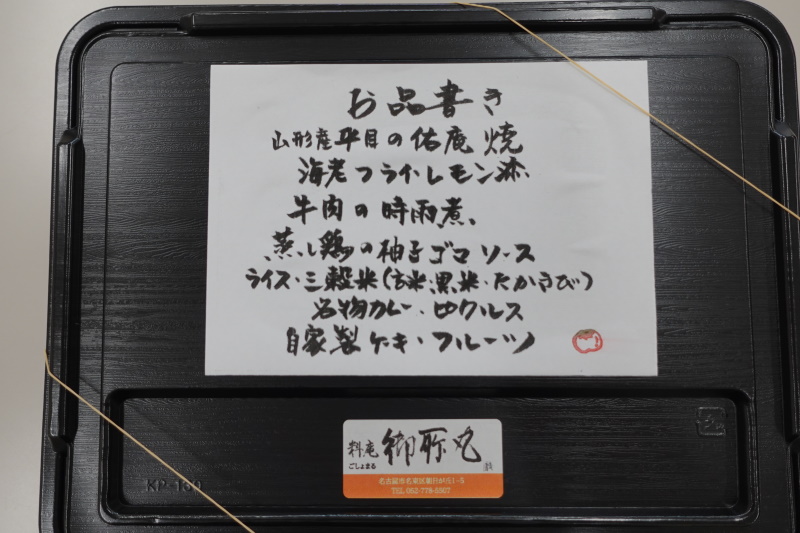 お品書き
山形産平目の佑庵焼
海老フライ・レモン添
牛肉の時雨煮、
蒸し鶏の柚子ゴマソース
ライス・三穀米(玄米・黒米・たかきび)
名物カレー・ピクルス
自家製ケーキ・フルーツ
料庵
ごしょまる
名古屋市名東区朝日が丘1-5
KP-160